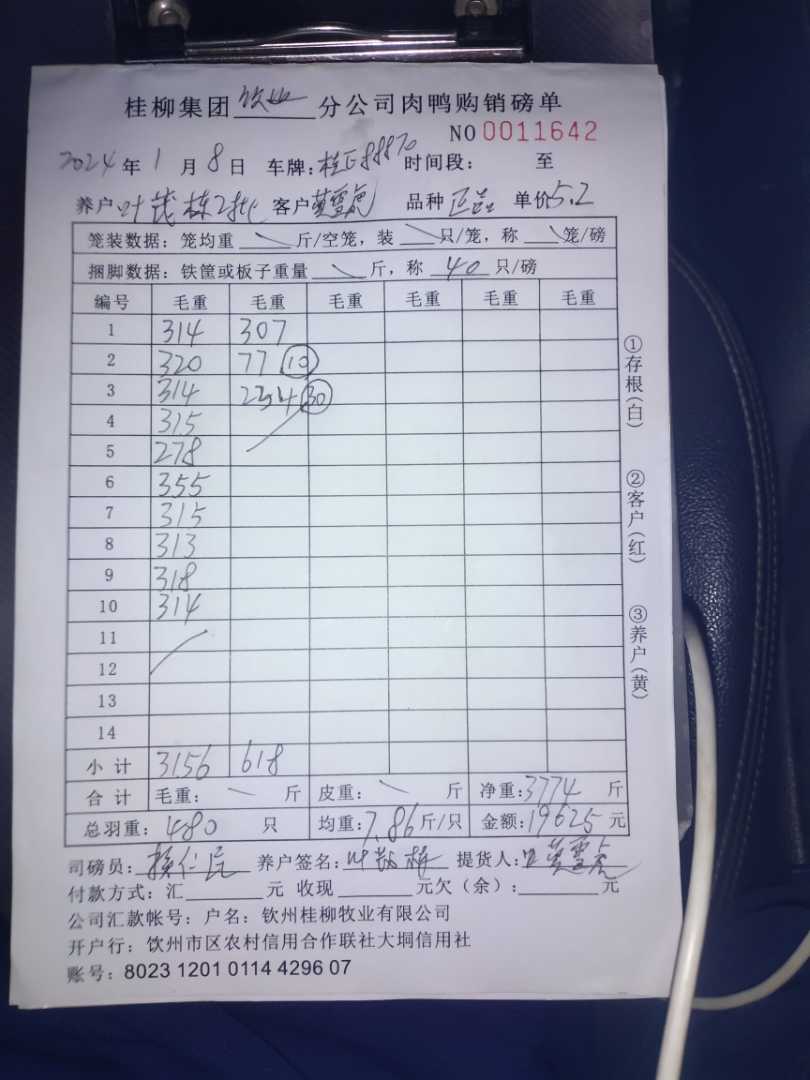 桂柳集团 钦州 分公司肉鸭购销磅单
NO 0011642
2024 年 1 月 8 日 车牌: 时间段: 至
养户: 叶 栋2批 客户 黄雪 品种 正品 单价 5.2
笼装数据: 笼均重 \ 斤/空笼, 装 \ 只/笼, 称 \ 笼/磅
捆脚数据: 铁筐或板子重量 \ 斤, 称 40 只/磅
编号 毛重 毛重 毛重 毛重 毛重 毛重
1 314 307
2 320 77 ⑩
3 314 234 ㉚
4 315
5 278
6 355
7 315
8 313
9 318
10 314
11
12
13
14
小计 3156 618
合计 毛重: \ 斤 皮重: \ 斤 净重: 3774 斤
总羽重: 480 只 均重: 7.86 斤/只 金额: 19625 元
司磅员: 养户签名: 叶 栋 提货人: 黄雪
付款方式: 汇 元 收现 元欠(余): 元
公司汇款帐号: 户名: 钦州桂柳牧业有限公司
开户行: 钦州市区农村信用合作联社大垌信用社
账号: 8023 1201 0114 4296 07
①存根(白)
②客户(红)
③养户(黄)